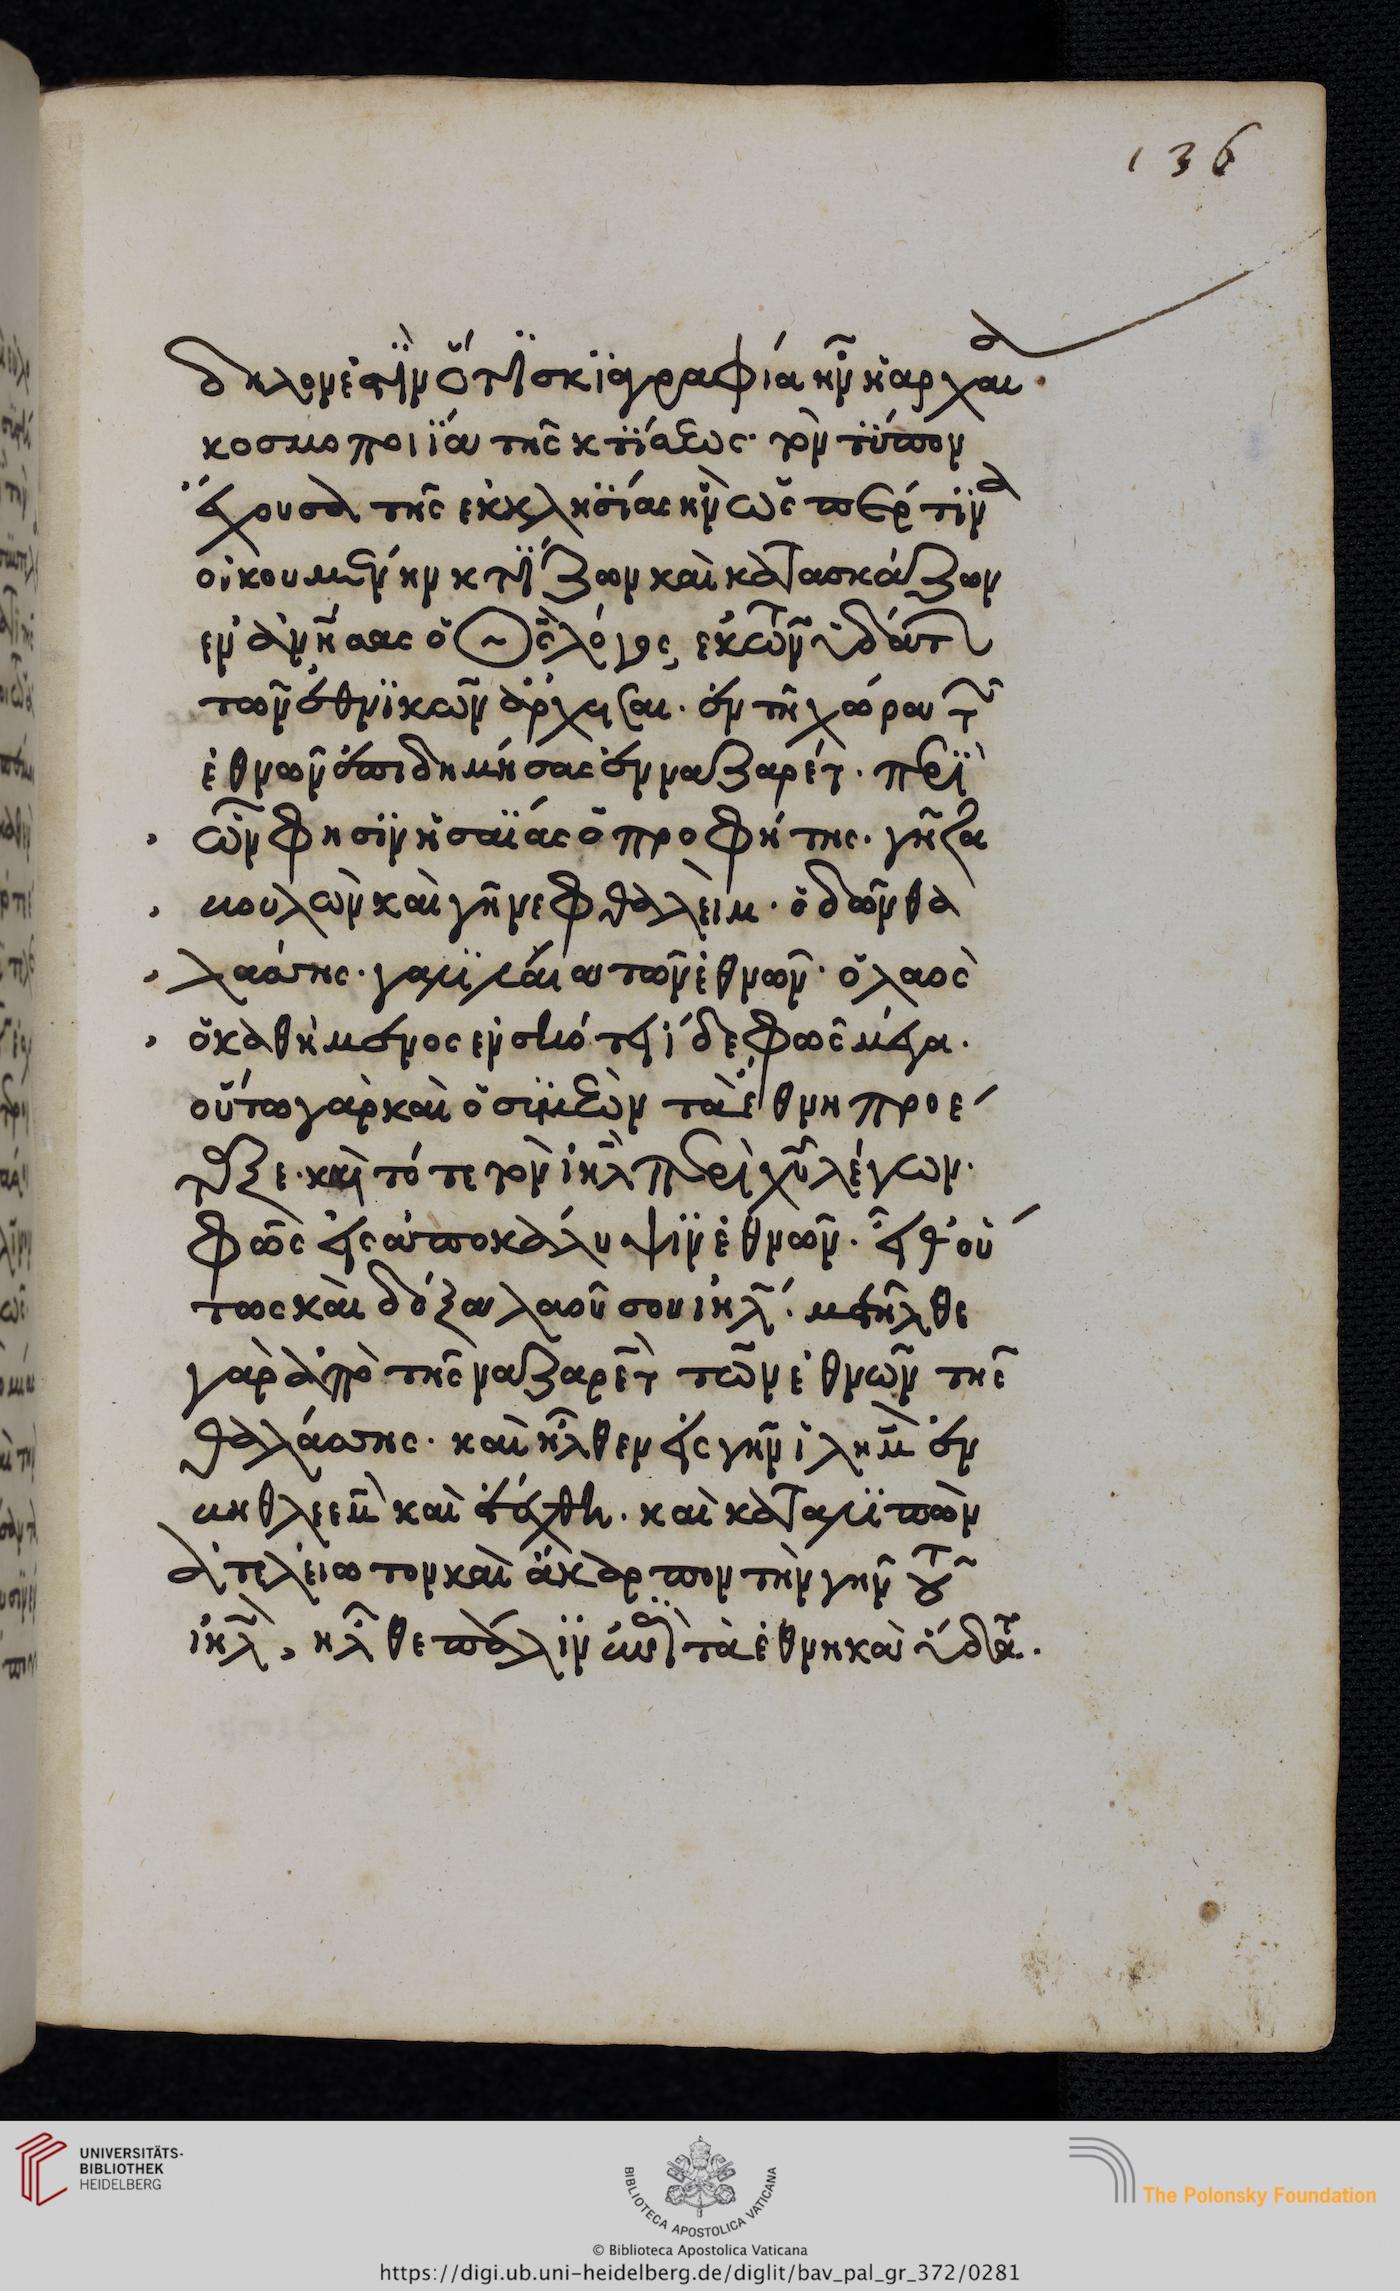 136
δηλονότι ὅτι σκιαγραφία ἦν ἡ ἀρχαία
κοσμοποιΐα τῆς κτίσεως. τὸν τύπον
ἔχουσα τῆς ἐκκλησίας ἣν ὥσπερ τινα
οἰκουμένην κτίζων καὶ κατασκευάζων
ὁ θς λόγος, ἐκ τῶν ὑδάτων
τῶν ἐθνϊκῶν ἄρχεται. ἐν τῇ χώρα τῶν
ἐθνῶν ἐπιδημήσας ἐν ναζαρέτ. περὶ
ὧν φησϊν ἡσαΐας ὁ προφήτης. γῆ ζα
βουλὼν καὶ γῆ νεφθαλεὶμ. ὁδὸν θα
λάσσης. γαλιλαία τῶν ἐθνῶν. ὁ λαὸς
ὁ καθήμενος ἐν σκότει ἴδε φῶς μέγα.
οὕτω γὰρ καὶ ὁ σϋμεὼν τὰ ἔθνη προέ
ταξε. καὶ τότε τὸν ἰηλ περὶ χυ λέγων.
φῶς εἰς ἀποκάλυψϊν ἐθνῶν. εἶθ' οὕ
τως καὶ δόξαν λαοῦ σου ἰηλ. μετῆλθε
γὰρ ἀπὸ τῆς ναζαρὲτ τῶν ἐθνῶν τῆς
θαλάσσης. καὶ ἦλθεν εἰς γῆν ἰλημ ἐν
βηθλεεμ καὶ ἐτέχθη. καὶ καταλιπὼν
ἀτελείωτον καὶ ἄκαρπον τὴν γῆν τοῦ
ἰηλ, ἦλθε πάλϊν ἐπὶ τὰ ἔθνη καὶ ὕδατα.
UNIVERSITÄTS-
BIBLIOTHEK
HEIDELBERG
BIBLIOTECA APOSTOLICA VATICANA
The Polonsky Foundation
© Biblioteca Apostolica Vaticana
https://digi.ub.uni-heidelberg.de/diglit/bav_pal_gr_372/0281